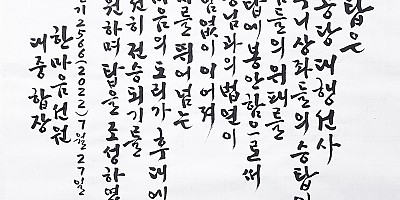 탑은
공당 대행선사
구니 상좌들의 승탑이
님들의 위패를
탑에 봉안함으로써
님과의 법연이
임없이 이어져
대를 뛰어넘는
음의 도리가 후대에
원히 전승되기를
원하며 탑을 조성하였
기2566(2022)7월27일
한마음선원
대중 합장